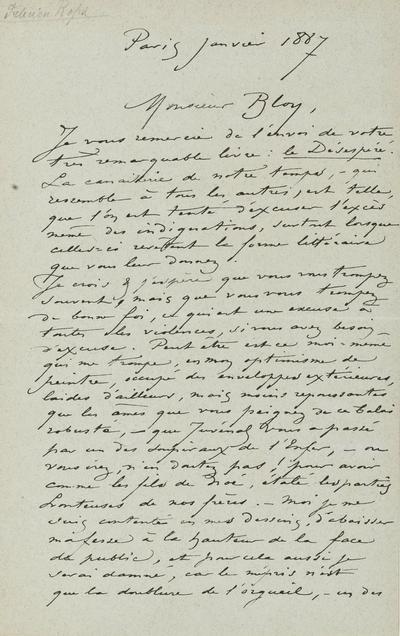 Félicien Rops
Paris janvier 1887
Monsieur Bloy,
Je vous remercie de l'envoi de votre
très remarquable livre : le Désespéré.
La canaillerie de notre temps, - qui
ressemble à tous les autres, est telle,
que l'on est tenté d'excuser l'excès
même des indignations, surtout lorsque
celles-ci revêtent la forme littéraire
que vous leur donnez.
Je crois & j'espère que vous vous trompez
souvent, mais que vous vous trompez
de bonne foi, ce qui est une excuse à
toutes les violences, si vous avez besoin
d'excuse. Peut être est ce moi-même
qui me trompe, en mon optimisme de
peintre, occupé des enveloppes extérieures,
laides d'ailleurs, mais moins repoussantes
que les âmes que vous peignez de ce balai
robuste, - que Juvénal vous a passé
par un des soupiraux de l'Enfer, - où
vous irez, n'en doutez pas ! pour avoir
comme les fils de Noé, étalé les parties
honteuses de nos frères. - Moi je me
suis contenté en mes dessins, d'abaisser
ma fesse à la hauteur de la face
du public, et pour cela aussi je
serai damné, car le mépris n'est
que la doublure de l'orgueil, - un des